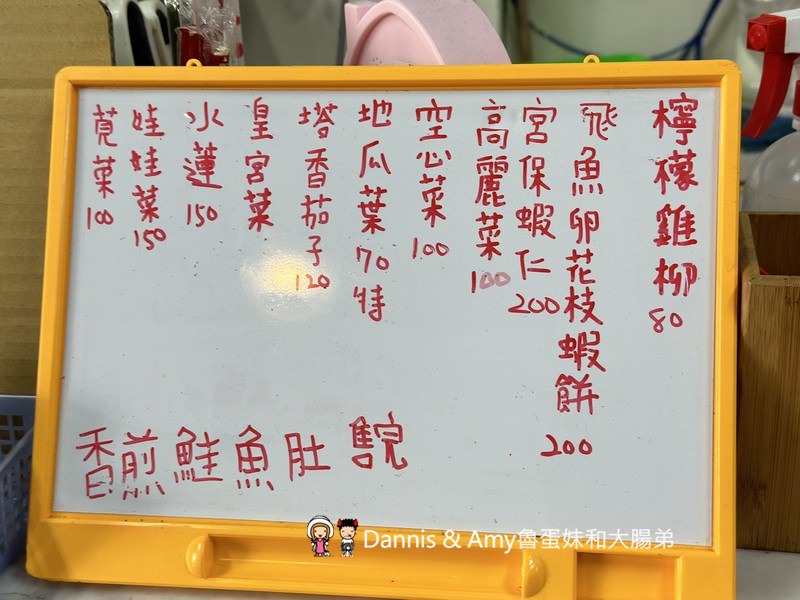 檸檬雞柳80
飛魚卵花枝蝦餅200
宮保蝦仁200
高麗菜100
空心菜100
地瓜葉70特
塔香茄子120
皇宮菜
水蓮150
娃娃菜150
莧菜100
香煎鮭魚肚
Dannis & Amy魯蛋妹和大腸弟